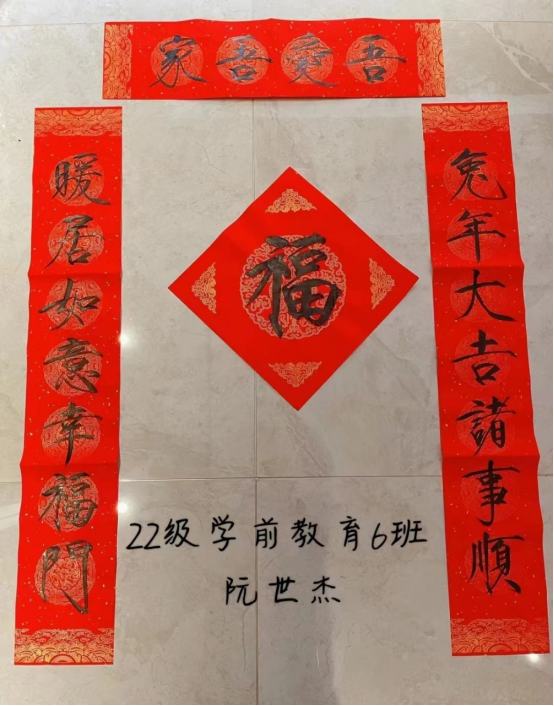 吾愛吾家
兔年大吉諸事順
暖居如意幸福門
福
22级学前教育6班
阮世杰